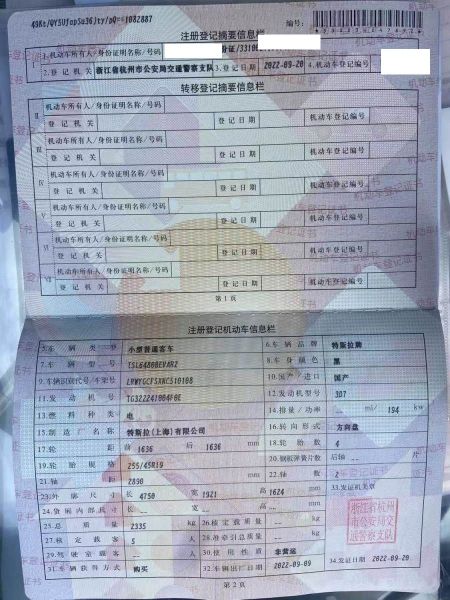 编号:
注册登记摘要信息栏
1.机动车所有人/身份证明名称/号码
2.登记机关 浙江省杭州市公安局交通警察支队 3.登记日期 2022-09-20 4.机动车登记编号
转移登记摘要信息栏
II 机动车所有人/身份证明名称/号码
登记机关 登记日期 机动车登记编号
III 机动车所有人/身份证明名称/号码
登记机关 登记日期 机动车登记编号
IV 机动车所有人/身份证明名称/号码
登记机关 登记日期 机动车登记编号
V 机动车所有人/身份证明名称/号码
登记机关 登记日期 机动车登记编号
VI 机动车所有人/身份证明名称/号码
登记机关 登记日期 机动车登记编号
VII 机动车所有人/身份证明名称/号码
登记机关 登记日期 机动车登记编号
第1页
注册登记机动车信息栏
5.车辆类型 小型普通客车 6.车辆品牌 特斯拉牌
7.车辆型号 TSL6480BEVAR2 8.车身颜色 黑
9.车辆识别代号/车架号 10.国产/进口 国产
11.发动机号 12.发动机型号 3D7
13.燃料种类 电 14.排量/功率 ml/ 194 kw
15.制造厂名称 特斯拉(上海)有限公司 16.转向形式 方向盘
17.轮距 前 1636 后 1636 mm 18.轮胎数 4
19.轮胎规格 255/45R19 20.钢板弹簧片数 后轴 -- 片
21.轴距 2890 mm 22.轴数 2
23.外廓尺寸 长 4750 宽 1921 高 1624 mm 33.发证机关章
24.货厢内部尺寸 长 -- 宽 -- 高 -- mm
浙江省杭州
市公安局交
通警察支队
25.总质量 2335 kg 26.核定载质量 -- kg
27.核定载客 5 人 28.准牵引总质量 -- kg
29.驾驶室载客 -- 人 30.使用性质 非营运
31.车辆获得方式 购买 32.车辆出厂日期 2022-09-09 34.发证日期 2022-09-20
第2页